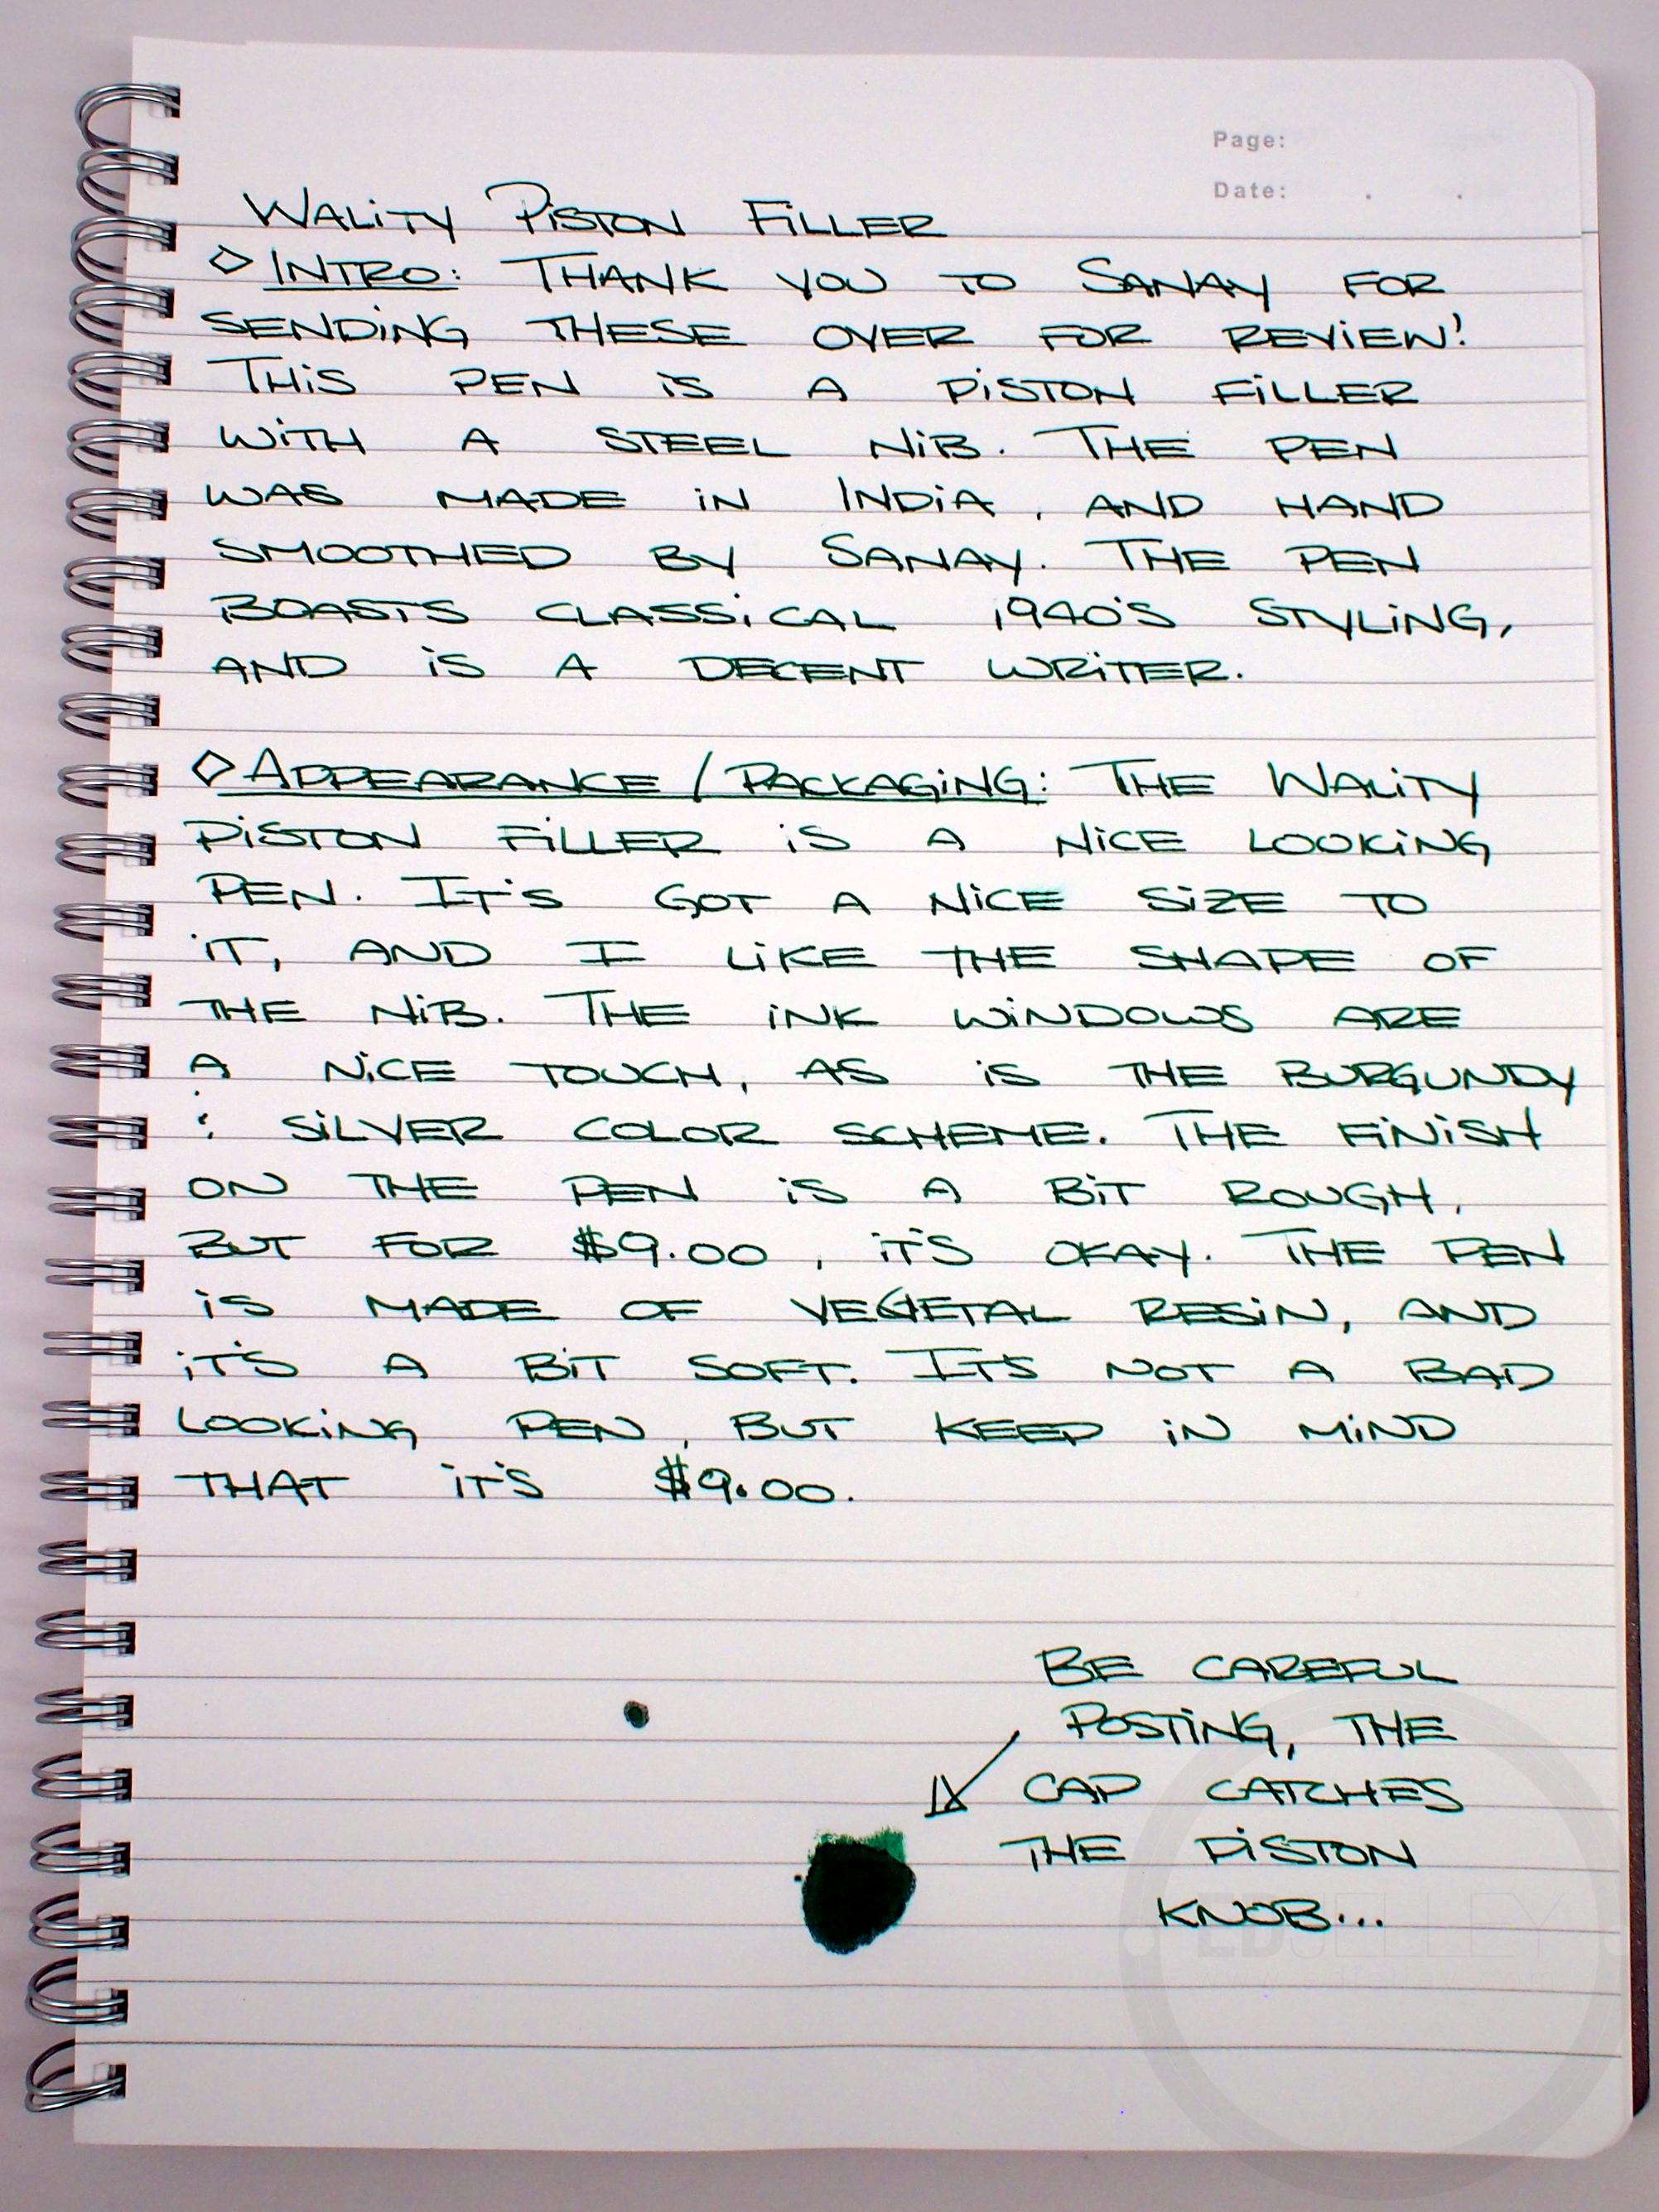 Page:
Date: . .
WALITY PISTON FILLER
◇ INTRO: THANK YOU TO SANAY FOR
SENDING THESE OVER FOR REVIEW!
THIS PEN IS A PISTON FILLER
WITH A STEEL NIB. THE PEN
WAS MADE IN INDIA, AND HAND
SMOOTHED BY SANAY. THE PEN
BOASTS CLASSICAL 1940'S STYLING,
AND IS A DECENT WRITER.
◇ APPEARANCE / PACKAGING: THE WALITY
PISTON FILLER IS A NICE LOOKING
PEN. IT'S GOT A NICE SIZE TO
IT, AND I LIKE THE SHAPE OF
THE NIB. THE INK WINDOWS ARE
A NICE TOUCH, AS IS THE BURGUNDY
& SILVER COLOR SCHEME. THE FINISH
ON THE PEN IS A BIT ROUGH,
BUT FOR $9.00, IT'S OKAY. THE PEN
IS MADE OF VEGETAL RESIN, AND
IT'S A BIT SOFT. IT'S NOT A BAD
LOOKING PEN, BUT KEEP IN MIND
THAT IT'S $9.00.
BE CAREFUL
POSTING, THE
CAP CATCHES
THE PISTON
KNOB...
EDJELLEY
www.edjelley.com